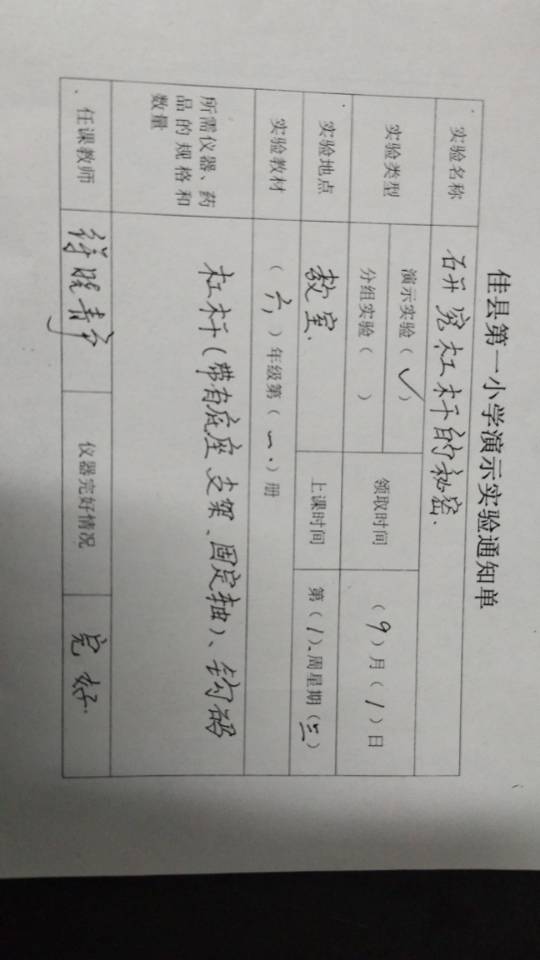 佳县第一小学演示实验通知单
实验名称 研究杠杆的秘密.
实验类型 演示实验(✓) 分组实验( ) 领取时间 (9)月(1)日
实验地点 教室. 上课时间 第(1)、周星期(三)
实验教材 (六)年级第(一.)册
所需仪器、药
品的规格和
数量
杠杆(带有底座 支架、固定轴)、钩码
任课教师 晓青 仪器完好情况 完好.